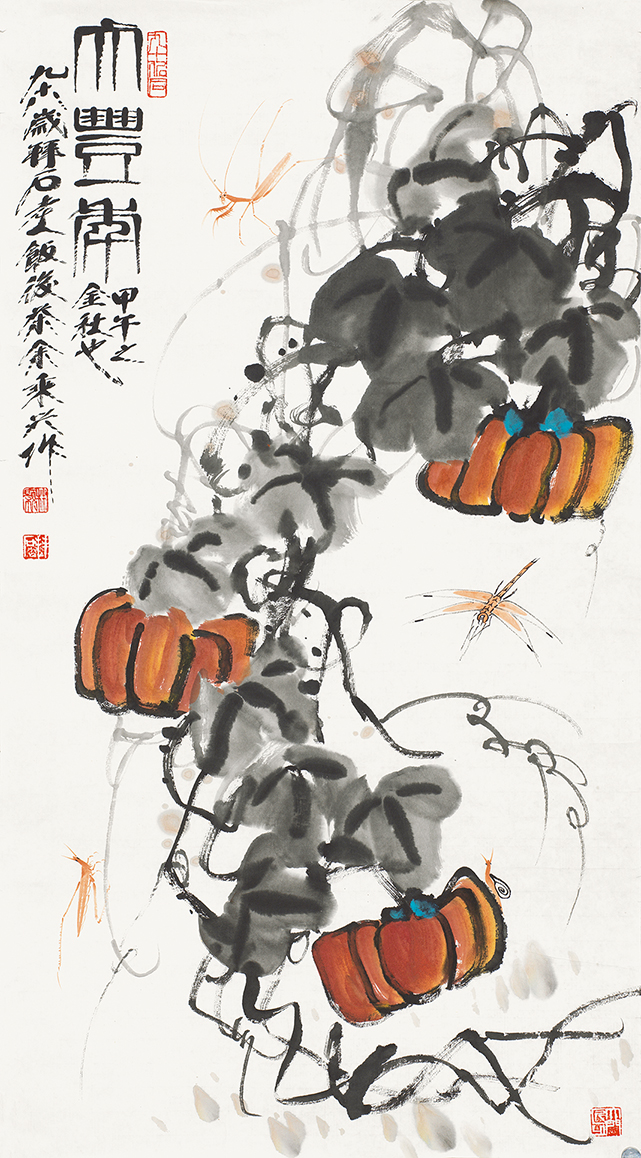 大豐年
甲午之
金秋也
九十八歲拜石老人飯後茶余乘兴作